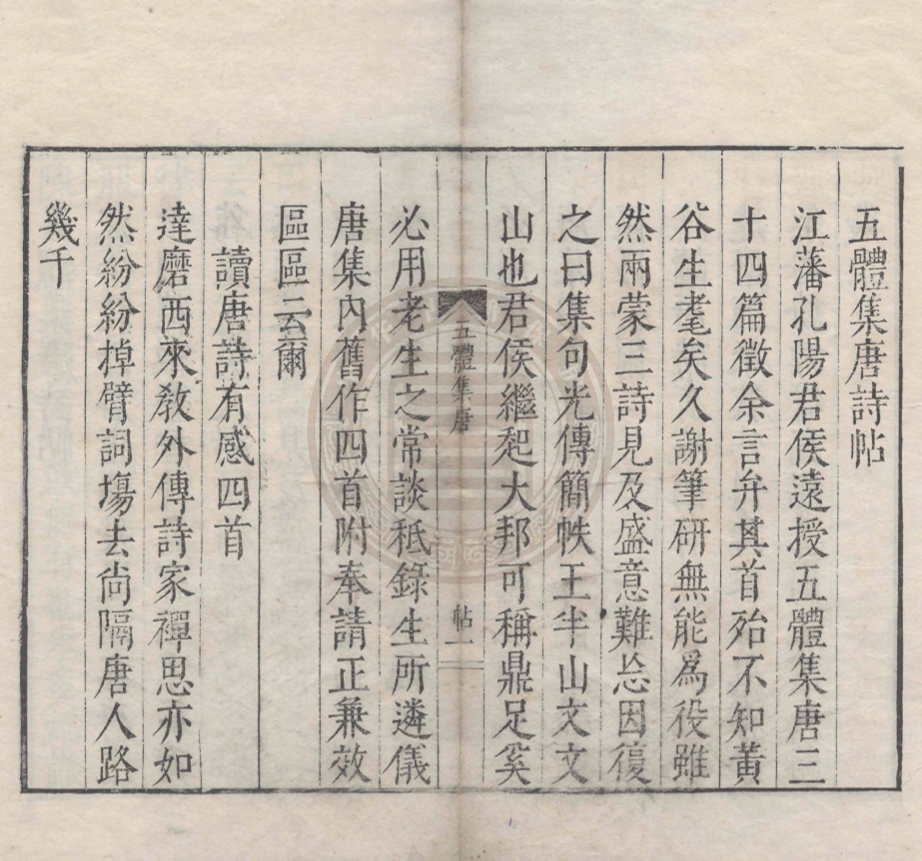 五體集唐詩帖
江藩孔陽君侯遠授五體集唐三
十四篇徵余言弁其首殆不知黃
谷生耄矣久謝筆研無能爲役雖
然兩蒙三詩見及盛意難恝因復
之曰集句光傳簡帙王半山文文
山也君侯繼起大邦可稱鼎足奚
五體集唐
帖一
必用老生之常談秪錄生所遴儀
唐集內舊作四首附奉請正兼效
區區云爾
讀唐詩有感四首
達磨西來敎外傳詩家禪思亦如
然紛紛掉臂詞塲去尙隔唐人路
幾千